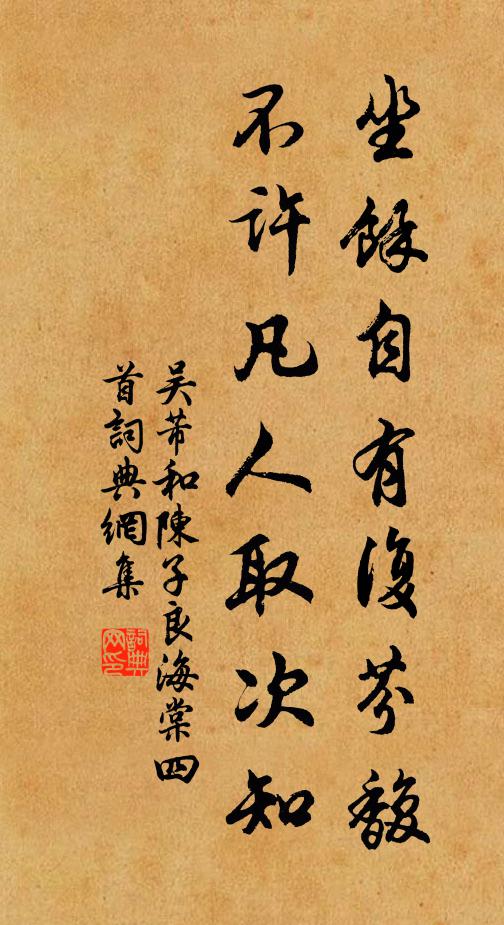 坐餘自有復芬馥
不許凡人取次知
吳芾和陳子良海棠四
首詞典網集
詞典網印